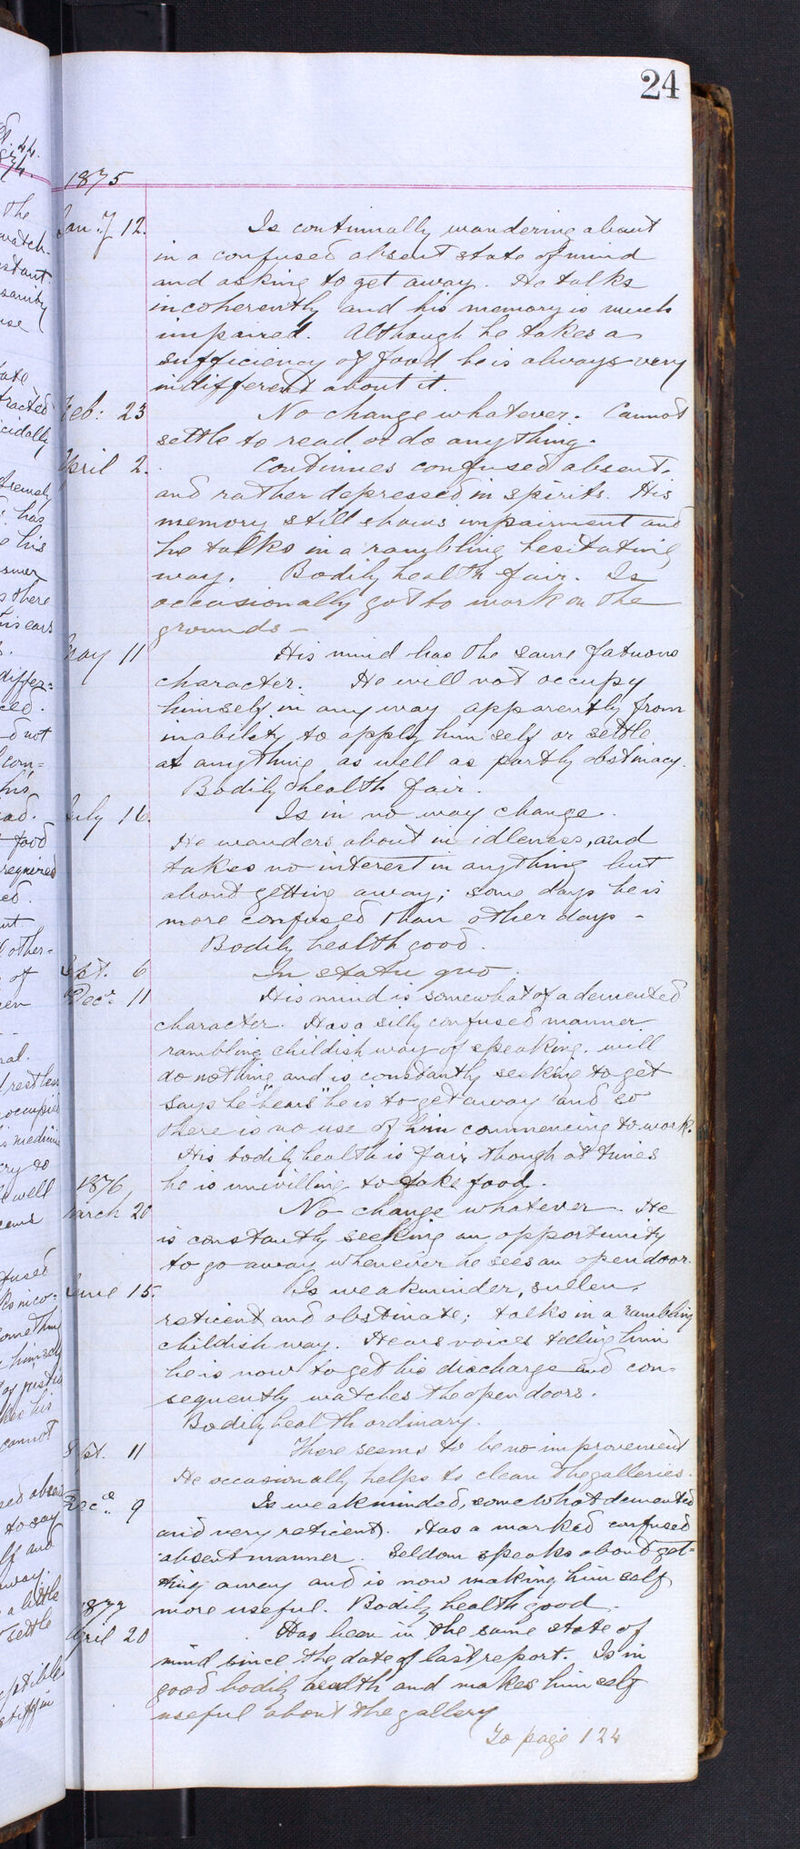 24
1875
Jan.y 12. Is continually wandering about
in a confused absent state of mind
and asking to get away. He talks
incoherently and his memory is much
impaired. Although he takes a
sufficiency of food he is always very
indifferent about it.
Feb: 23 No change whatever. Cannot
settle to read or do anything.
April 2. Continues confused absent.
and rather depressed in spirits. His
memory still shows impairment and
he talks in a rambling hesitating
way. Bodily health fair. Is
occasionally got to work on the
grounds —
May 11 His mind has the same fatuous
character. He will not occupy
himself in any way apparently from
inability to apply him self or settle
at anything as well as partly obstinacy.
Bodily health fair.
July 16. Is in no way change.
He wanders about in idleness, and
takes no interest in anything but
about getting away; some days he is
more confused than other days -
Bodily health good.
Sept. 6 In statu quo.
Dec.r 11 His mind is somewhat of a demented
character. Has a silly confused manner
rambling childish way of speaking. will
do nothing and is constantly seeking to get
says he "hears" he is to get away and so
there is no use of him commencing to work.
His bodily health is fair though at times
1876 he is unwilling to take food.
March 20 No change whatever. He
is constantly seeking an opportunity
to go away whenever he sees an open door.
June 15. Is weakminder, sullen,
reticent and obstinate; talks in a rambling
childish way. Hears voices telling him
he is now to get his discharge and con-
sequently watches the open doors.
Bodily health ordinary.
Sept. 11 There seems to be no improvement
He occasionally helps to clean the galleries.
Dec.r 9 Is weakminded, somewhat demented
and very reticent. Has a marked confused
absent manner. Seldom speaks about get-
ting away and is now making him self
1877 more useful. Bodily health good.
April 20 Has been in the same state of
mind since the date of last report. Is in
good bodily health and makes him self
useful about the gallery
To page 124